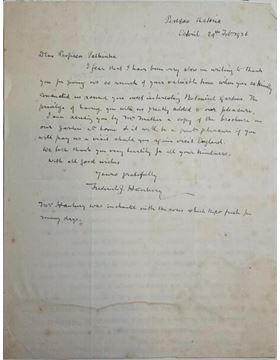 Dear Professor
I fear that I have been very slow in writing to thank
you for giving us so much of your valuable time when you so kindly
conducted us round your most interesting Botanical Gardens. The
privilege of having you with us greatly added to our pleasure.
I am sending you by this a copy of the brochure on
our garden at home & it will be a great pleasure if you
will pay us a visit should you again visit England.
We both thank you very heartily for all your kindness.
With all good wishes
Yours gratefully
Frederick J. Hanbury
Mrs Hanbury was enchanted with the roses which kept fresh for
many days.